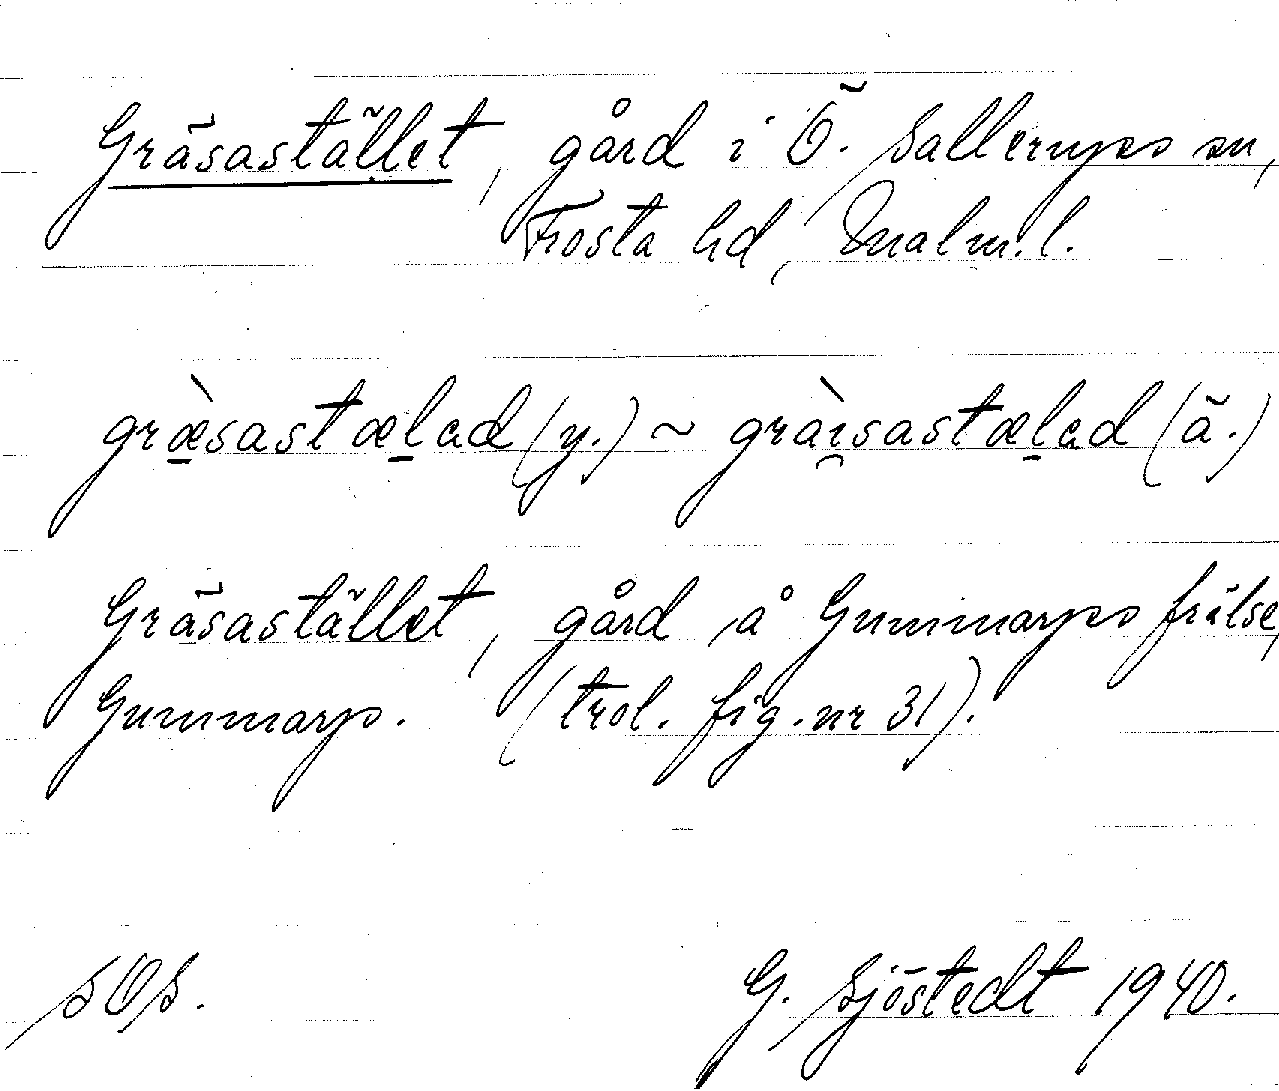 Gräsastället, gård i Ö. Sallerups sn,
Frosta hd, Malm. l.
græ̀sastælad (y.) ~ graìsastælad (ä.)
Gräsastället, gård å Gummarps frälse,
Gummarps. (trol. fig. nr 31).
sOs. G. Sjöstedt 1940.